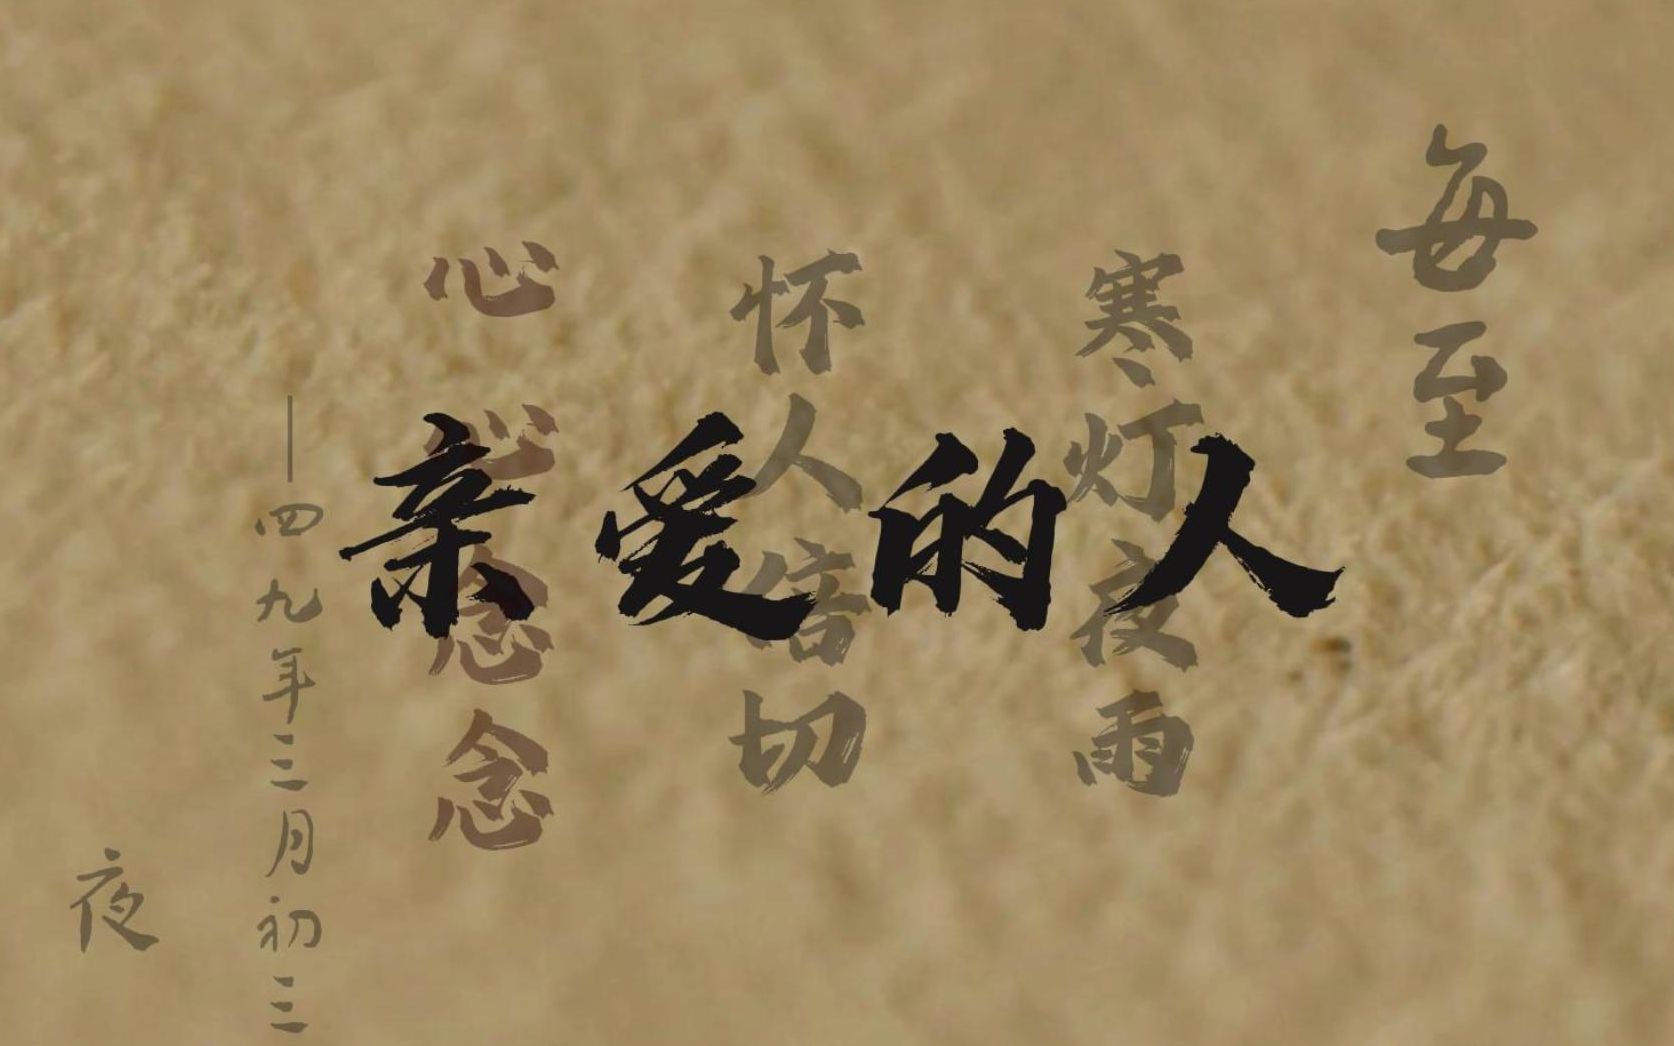 亲爱的人
每至
寒灯夜雨
怀人倍切
心心念念
—四九年三月初三
夜